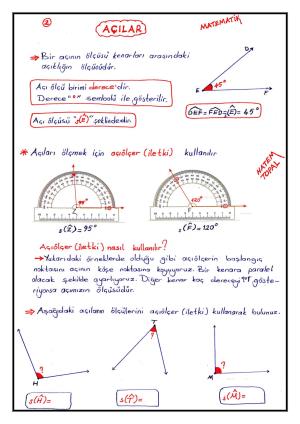 ②
AÇILAR
MATEMATİK
⇒ Bir açının ölçüsü kenarları arasındaki
açıklığın ölçüsüdür.
Açı ölçü birimi derece'dir.
Derece "o" sembolü ile gösterilir.
Açı ölçüsü "s(Ê)" şeklindedir.
D
45°
E
F
DEF = FED = (Ê) = 45°
* Açıları ölçmek için açıölçer (iletki) kullanılır
HATEM
TOPAL
s(Ê) = 95°
s(F̂) = 120°
Açıölçer (iletki) nasıl kullanılır?
⇒ Yukarıdaki örneklerde olduğu gibi açıölçerin başlangıç
noktasını açının köşe noktasına koyuyoruz. Bir kenara paralel
olacak şekilde ayarlıyoruz. Diğer kenar kaç dereceyi göste-
riyorsa açımızın ölçüsüdür.
⇒ Aşağıdaki açıların ölçülerini açıölçer (iletki) kullanarak bulunuz.
T
?
?
?
H
M
s(Ĥ) =
s(T̂) =
s(M̂) =